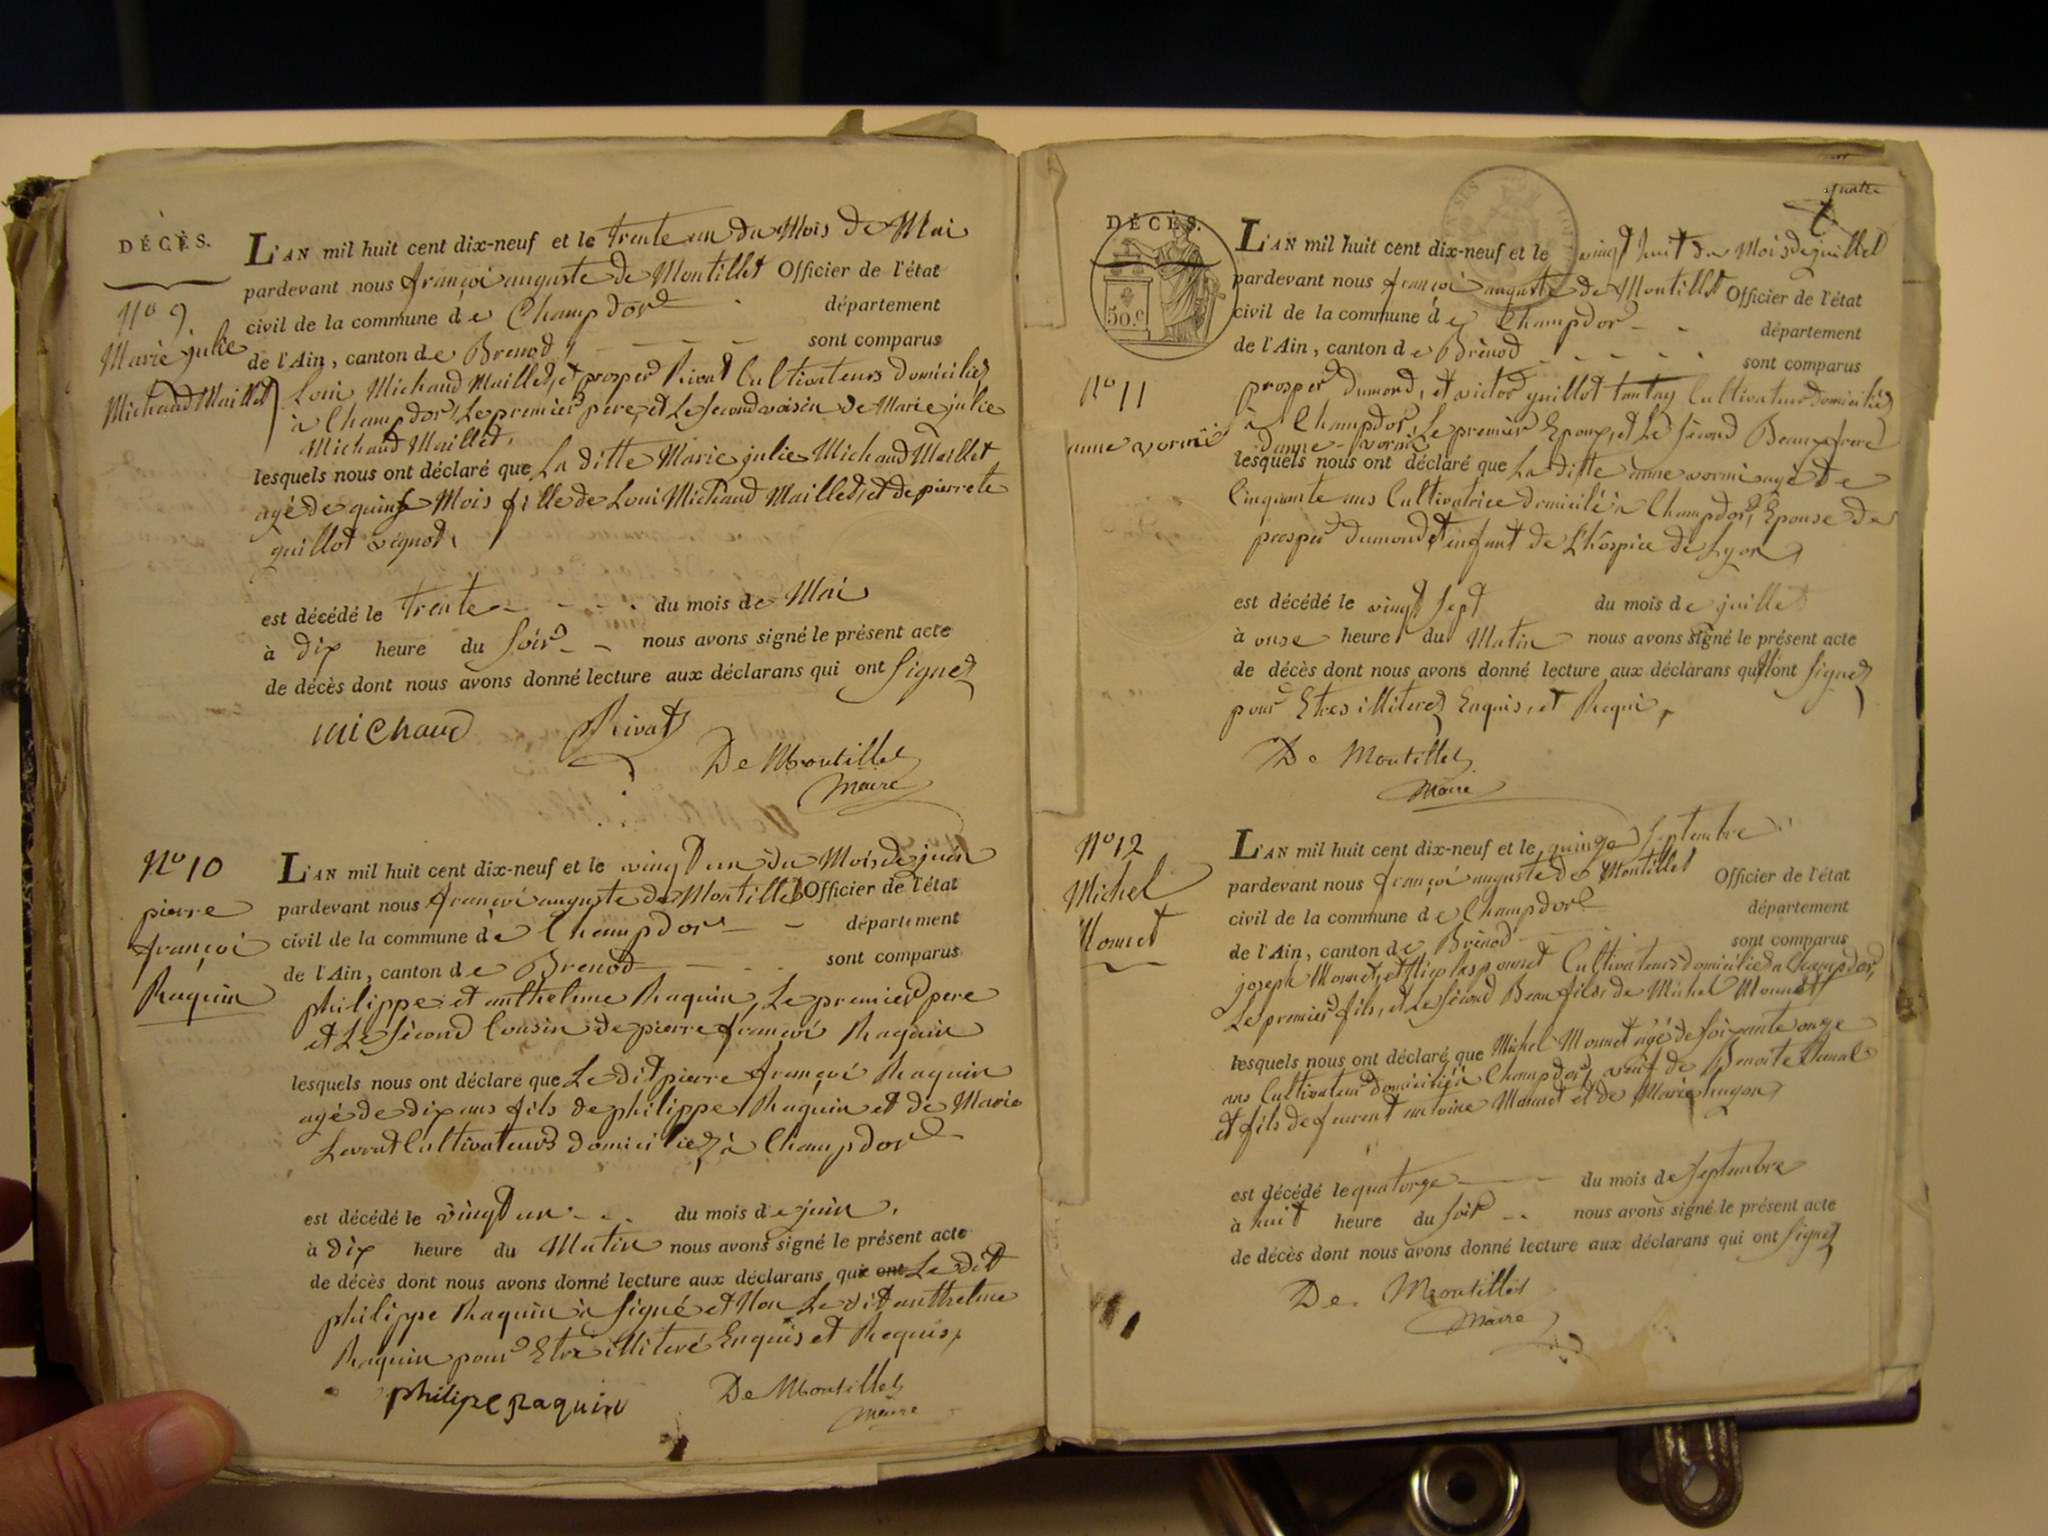 DÉCÈS.
L'AN mil huit cent dix-neuf et le trente un du Mois de Mai
pardevant nous françoi auguste de Montillet Officier de l'état
civil de la commune de Champdor département
de l'Ain, canton de Brenod sont comparus
No 9
Marie julie
Michaud Maillet
Loui Michaud Maillet, et prosper Rivat Cultivateurs domiciliez
à Champdor, Le premier pere, et Le Second voisin de Marie julie
Michaud Maillet,
lesquels nous ont déclaré que La ditte Marie julie Michaud Maillet
agé de quinse Mois fille de Loui Michaud Maillet, et de pierrete
guillot
est décédé le trente du mois de Mai
à dix heure du Soir nous avons signé le présent acte
de décès dont nous avons donné lecture aux déclarans qui ont Signez
michaud Rivat
De Montillet
Maire
No 10
pierre
françoi
Raquin
L'AN mil huit cent dix-neuf et le vingt un du Mois de juin
pardevant nous françoi auguste de Montillet Officier de l'état
civil de la commune de Champdor département
de l'Ain, canton de Brenod sont comparus
philippe et anthelme Raquin, Le premier pere
et Le Sécond Cousin de pierre françoi Raquin
lesquels nous ont déclaré que Le dit pierre françoi Raquin
agé de dix ans fils de philippe Raquin et de Marie
Levrat Cultivateurs domiciliez à Champdor
est décédé le vingt un du mois de juin,
à dix heure du Matin nous avons signé le présent acte
de décès dont nous avons donné lecture aux déclarans qui ont Le dit
philippe Raquin à Signé et Non Le dit anthelme
Raquin pour Etre illiteré Enquis et Requis,
philipe Raquin De Montillet
Maire
quatre
DÉCÈS.
50.c
L'AN mil huit cent dix-neuf et le vingt huit du Mois de juillet
pardevant nous françoi auguste de Montillet Officier de l'état
civil de la commune de Champdor département
de l'Ain, canton de Brénod sont comparus
No 11
anne vormi
prosper Dumond, et victor guillot tantay Cultivateurs domiciliés
à Champdor, Le premier Epoux, et Le Sécond Beaufrere
danne vormi
lesquels nous ont déclaré que La ditte anne vormi agé de
Cinquante ans Cultivatrice domicilié à Champdor, Epouse de
prosper Dumond et enfant de L'hospice de Lyon,
est décédé le vingt Sept du mois de juillet
à onse heure du Matin nous avons signé le présent acte
de décès dont nous avons donné lecture aux déclarans qui n'ont Signez
pour Etres illiterez Enquis, et Requi,
De Montillet
Maire
No 12
Michel
Monnet
L'AN mil huit cent dix-neuf et le quinze Septembre
pardevant nous françoi auguste de Montillet Officier de l'état
civil de la commune de Champdor département
de l'Ain, canton de Brénod sont comparus
joseph Monnet, et Cultivateurs domiciliez a Champdor,
Le premier fils, et Le Sécond Beau fils de Michel Monnet
lesquels nous ont déclaré que Michel Monnet agé de Soixante onze
ans Cultivateur domicilié à Champdor, veuf de Benoite
et fils de antoine Monnet et de Marie
est décédé le quatorze du mois de Septembre
à huit heure du Soir nous avons signé le présent acte
de décès dont nous avons donné lecture aux déclarans qui ont Signez
De Montillet
Maire